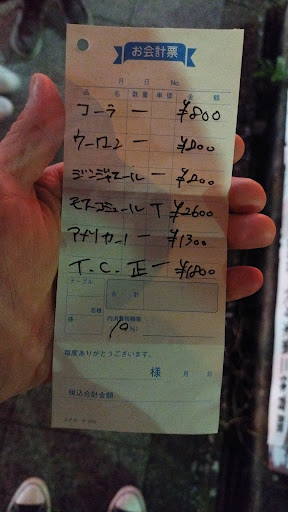 お会計票
月 日 No.
品 名 数量 単価 金 額
コーラ 一 ¥800
ウーロン 一 ¥800
ジンジャエール 一 ¥800
モスコミュール T ¥2600
アメリカーノ 一 ¥1300
T.C. 正一 ¥6800
テーブル
名様
係
合 計
内消費税額等
10 %)
毎度ありがとうございます。
様 月 日
税込合計金額